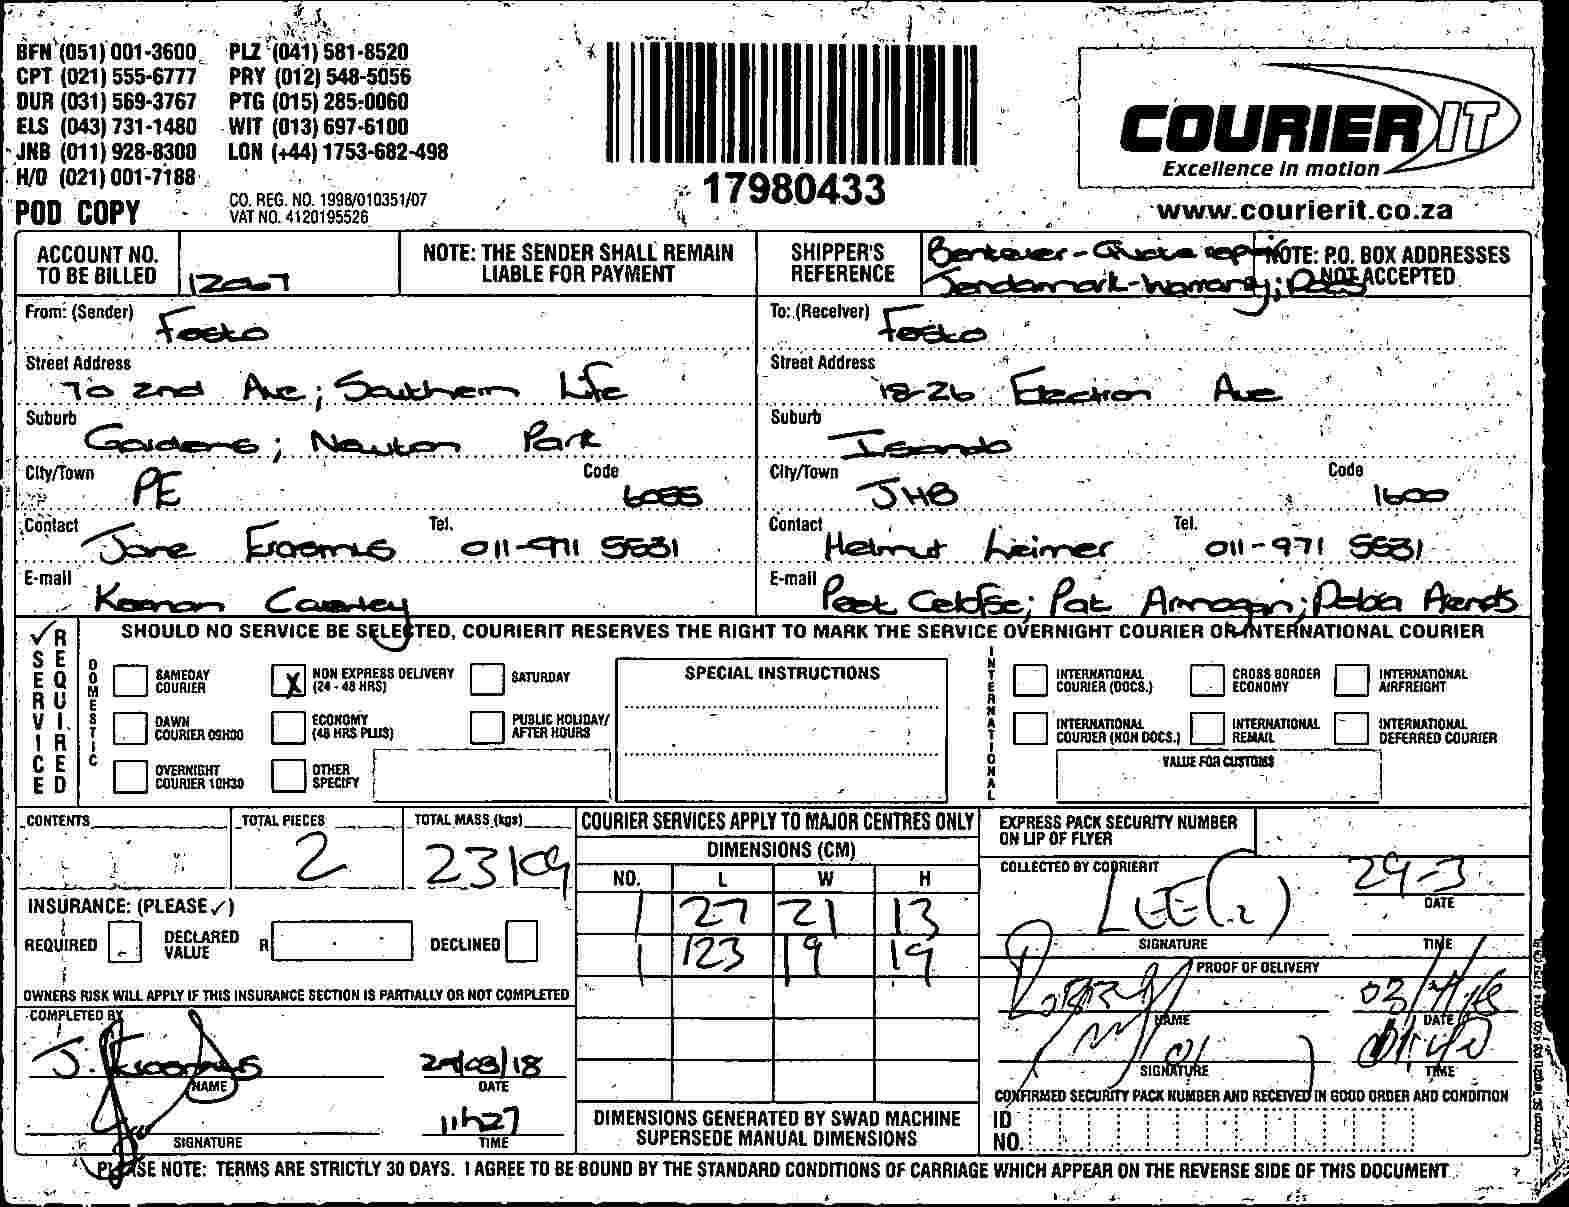 BFN (051) 001-3600 PLZ (041) 581-8520
CPT (021) 555-6777 PRY (012) 548-5056
DUR (031) 569-3767 PTG (015) 285-0060
ELS (043) 731-1480 WIT (013) 697-6100
JNB (011) 928-8300 LON (+44) 1753-682-498
H/O (021) 001-7188
POD COPY
CO. REG. NO. 1998/010351/07
VAT NO. 4120195526
17980433
COURIER IT
Excellence in motion
www.courierit.co.za
ACCOUNT NO.
TO BE BILLED
NOTE: THE SENDER SHALL REMAIN
LIABLE FOR PAYMENT
SHIPPER'S
REFERENCE
Jendamark-Warranty;
NOTE: P.O. BOX ADDRESSES
NOT ACCEPTED
From: (Sender) Festo
Street Address
70 2nd Ave; Southern Life
Suburb
Gardens; Newton Park
City/Town PE Code 6055
Contact Jane Erasmus Tel. 011-971 5531
E-mail Keenan
To: (Receiver) Festo
Street Address
18-26 Electron Ave
Suburb
Isando
City/Town JHB Code 1600
Contact Helmut Leimer Tel. 011-971 5531
E-mail Pat
SERVICE REQUIRED
SHOULD NO SERVICE BE SELECTED, COURIERIT RESERVES THE RIGHT TO MARK THE SERVICE OVERNIGHT COURIER OR INTERNATIONAL COURIER
DOMESTIC
SAMEDAY
COURIER
X NON EXPRESS DELIVERY
(24 - 48 HRS)
SATURDAY
DAWN
COURIER 09H00
ECONOMY
(48 HRS PLUS)
PUBLIC HOLIDAY/
AFTER HOURS
OVERNIGHT
COURIER 10H30
OTHER
SPECIFY
SPECIAL INSTRUCTIONS
INTERNATIONAL
INTERNATIONAL
COURIER (DOCS.)
CROSS BORDER
ECONOMY
INTERNATIONAL
AIRFREIGHT
INTERNATIONAL
COURIER (NON DOCS.)
INTERNATIONAL
REMAIL
INTERNATIONAL
DEFERRED COURIER
VALUE FOR CUSTOMS
CONTENTS
TOTAL PIECES
2
TOTAL MASS (kgs)
23kg
INSURANCE: (PLEASE ✓)
REQUIRED
DECLARED
VALUE
R
DECLINED
OWNERS RISK WILL APPLY IF THIS INSURANCE SECTION IS PARTIALLY OR NOT COMPLETED
COMPLETED BY
J. Erasmus
NAME
29/03/18
DATE
SIGNATURE
11h27
TIME
COURIER SERVICES APPLY TO MAJOR CENTRES ONLY
DIMENSIONS (CM)
NO. L W H
1 27 21 13
1 123 19 19
DIMENSIONS GENERATED BY SWAD MACHINE
SUPERSEDE MANUAL DIMENSIONS
EXPRESS PACK SECURITY NUMBER
ON LIP OF FLYER
COLLECTED BY COURIERIT
LEE(2)
SIGNATURE
29-3
DATE
TIME
PROOF OF DELIVERY
NAME
DATE
SIGNATURE
TIME
CONFIRMED SECURITY PACK NUMBER AND RECEIVED IN GOOD ORDER AND CONDITION
ID
NO.
PLEASE NOTE: TERMS ARE STRICTLY 30 DAYS. I AGREE TO BE BOUND BY THE STANDARD CONDITIONS OF CARRIAGE WHICH APPEAR ON THE REVERSE SIDE OF THIS DOCUMENT